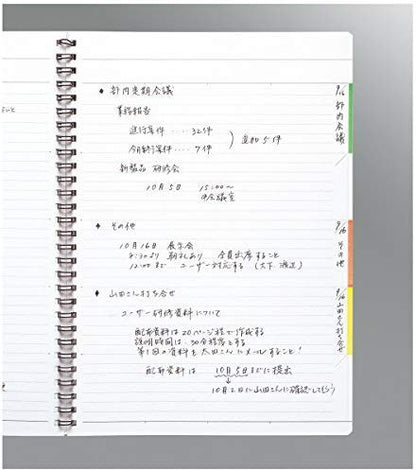 ◆ 部内定期会議
業務報告
進行案件 ‥‥ 32件
今月終了案件 ‥‥ 7件
追加5件
新製品 研修会
10月5日 15:00〜
会議室
◆ その他
10月16日 展示会
9:30より 朝礼あり 全員出席すること
12:00まで ユーザー対応する (大下、渡辺)
◆ 山田さん打ち合せ
ユーザー研修資料について
配布資料は20ページ程で作成する
説明時間は、30分程度とする
第1回の資料を太田さんにメールすること!
配布資料は 10月5日までに提出
↓
10月2日に山田さんに確認してもらう
9/16 部内会議
9/16 その他
9/16 山田さん打ち合せ